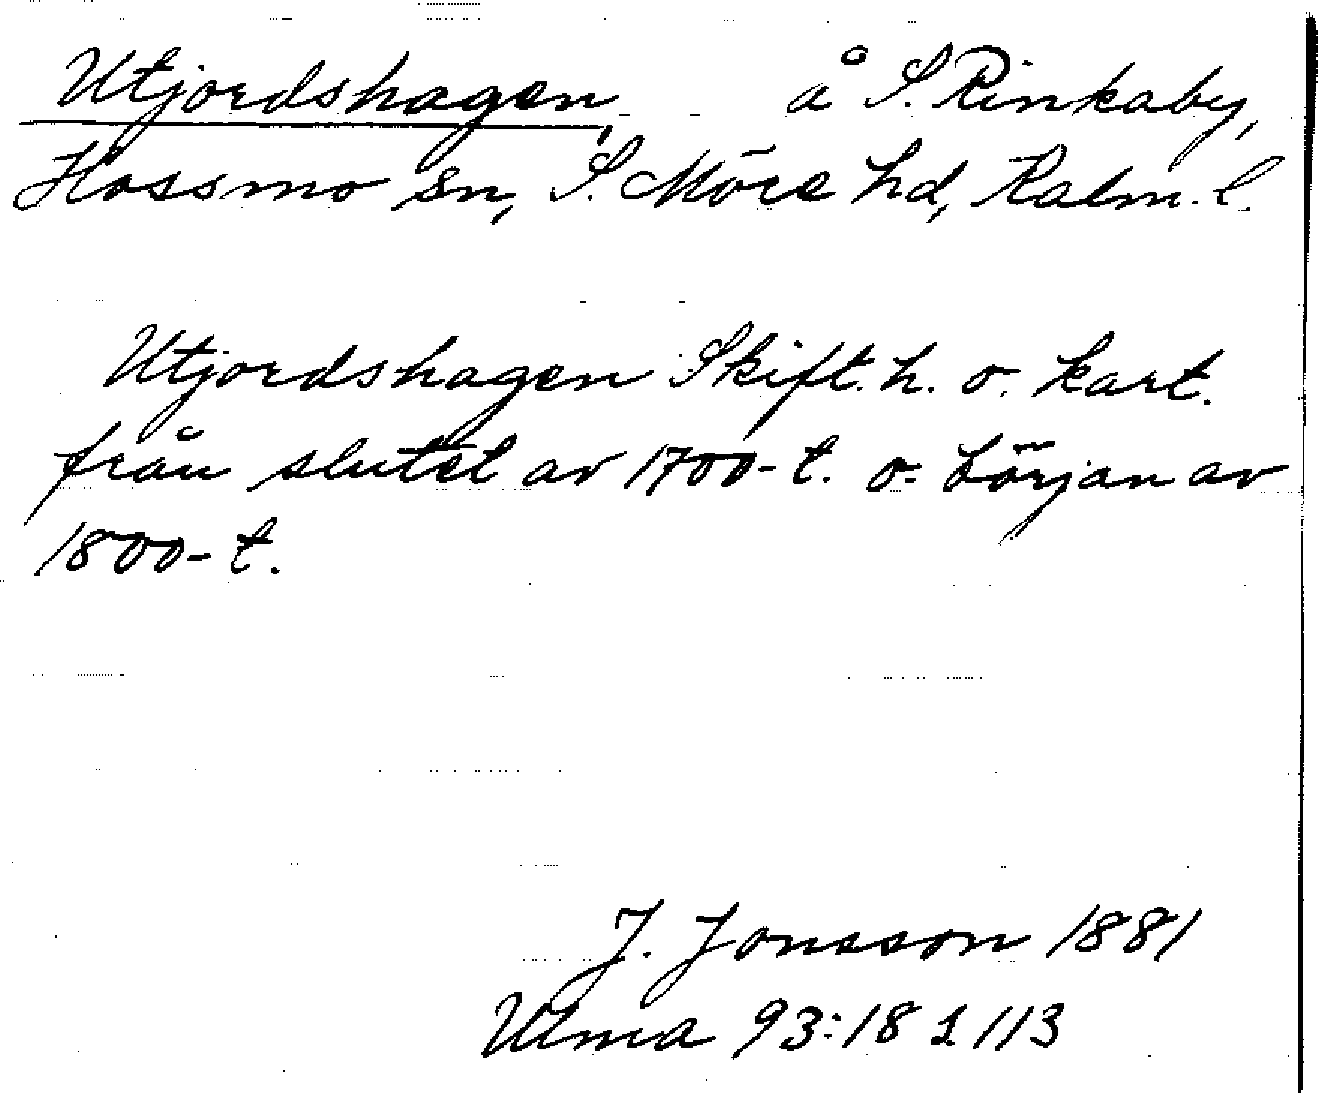 Utjordshagen, å S. Rinkaby,
Hossmo sn, S. Möre hd, Kalm. l.
Utjordshagen Skift. h. o. kart.
från slutet av 1700-t. o. början av
1800-t.
J. Jonsson 1881
Ulma 93:18 1 113